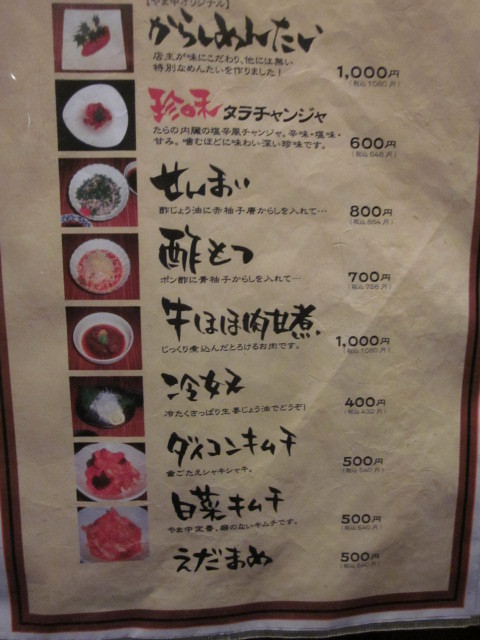 【やま中オリジナル】
からしめんたい
店主が味にこだわり、他には無い
特別なめんたいを作りました！
1,000円
(税込1080円)
珍味 タラチャンジャ
たらの内臓の塩辛風チャンジャ。辛味・塩味・
甘み。噛むほどに味わい深い珍味です。
600円
(税込648円)
せんまい
酢じょう油に赤柚子唐からしを入れて…
800円
(税込864円)
酢もつ
ポン酢に青柚子からしを入れて…
700円
(税込756円)
牛ほほ肉甘煮
じっくり煮込んだとろけるお肉です。
1,000円
(税込1080円)
冷奴
冷たくさっぱり生姜じょう油でどうぞ！
400円
(税込432円)
ダイコンキムチ
歯ごたえシャキシャキ。
500円
(税込540円)
白菜キムチ
やま中定番、癖のないキムチです。
500円
(税込540円)
えだまめ
500円
(税込540円)